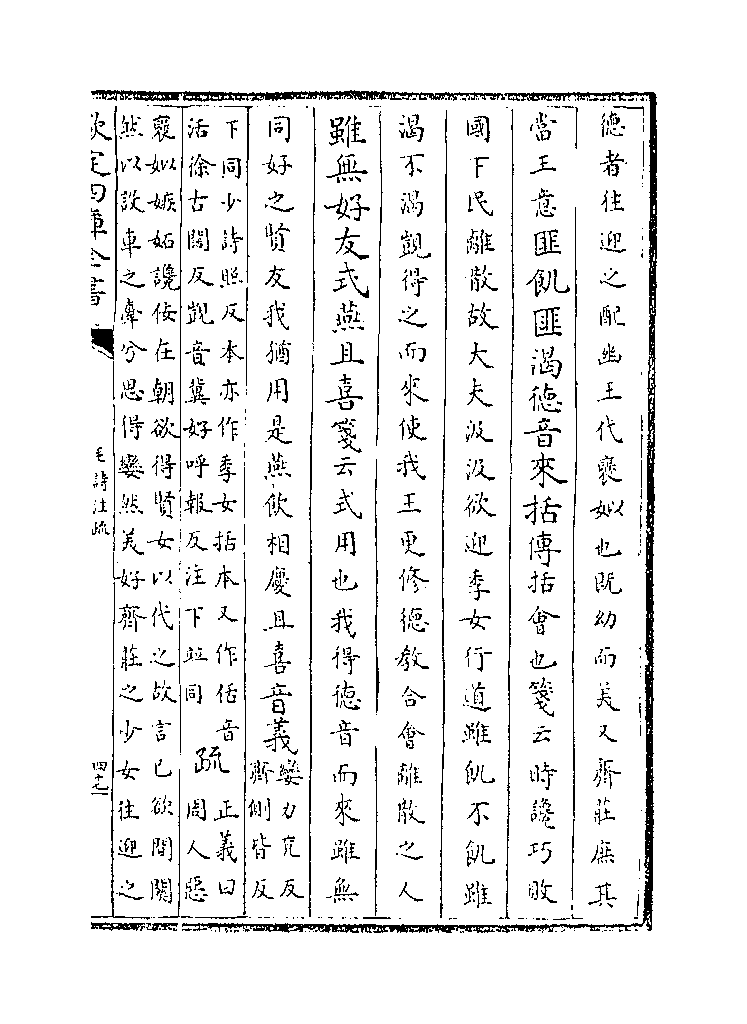 德者往迎之配幽王代褒姒也既幼而美又齊莊庶其
當王意匪飢匪渴德音來括傳括會也箋云時讒巧敗
國下民離散故大夫汲汲欲迎季女行道雖飢不飢雖
渴不渴覬得之而來使我王更修德教合會離散之人
雖無好友式燕且喜箋云式用也我得德音而來雖無
同好之賢友我猶用是燕飲相慶且喜音義孌力兗反
齊側皆反
下同少詩照反本亦作季女括本又作佸音
活徐古闊反覬音冀好呼報反注下並同
疏正義曰
周人惡
褒姒嫉妬讒佞在朝欲得賢女以代之故言已欲間關
然以設車之舝兮思得孌然美好齊莊之少女往迎之
欽定四庫全書
毛詩注疏
四十九